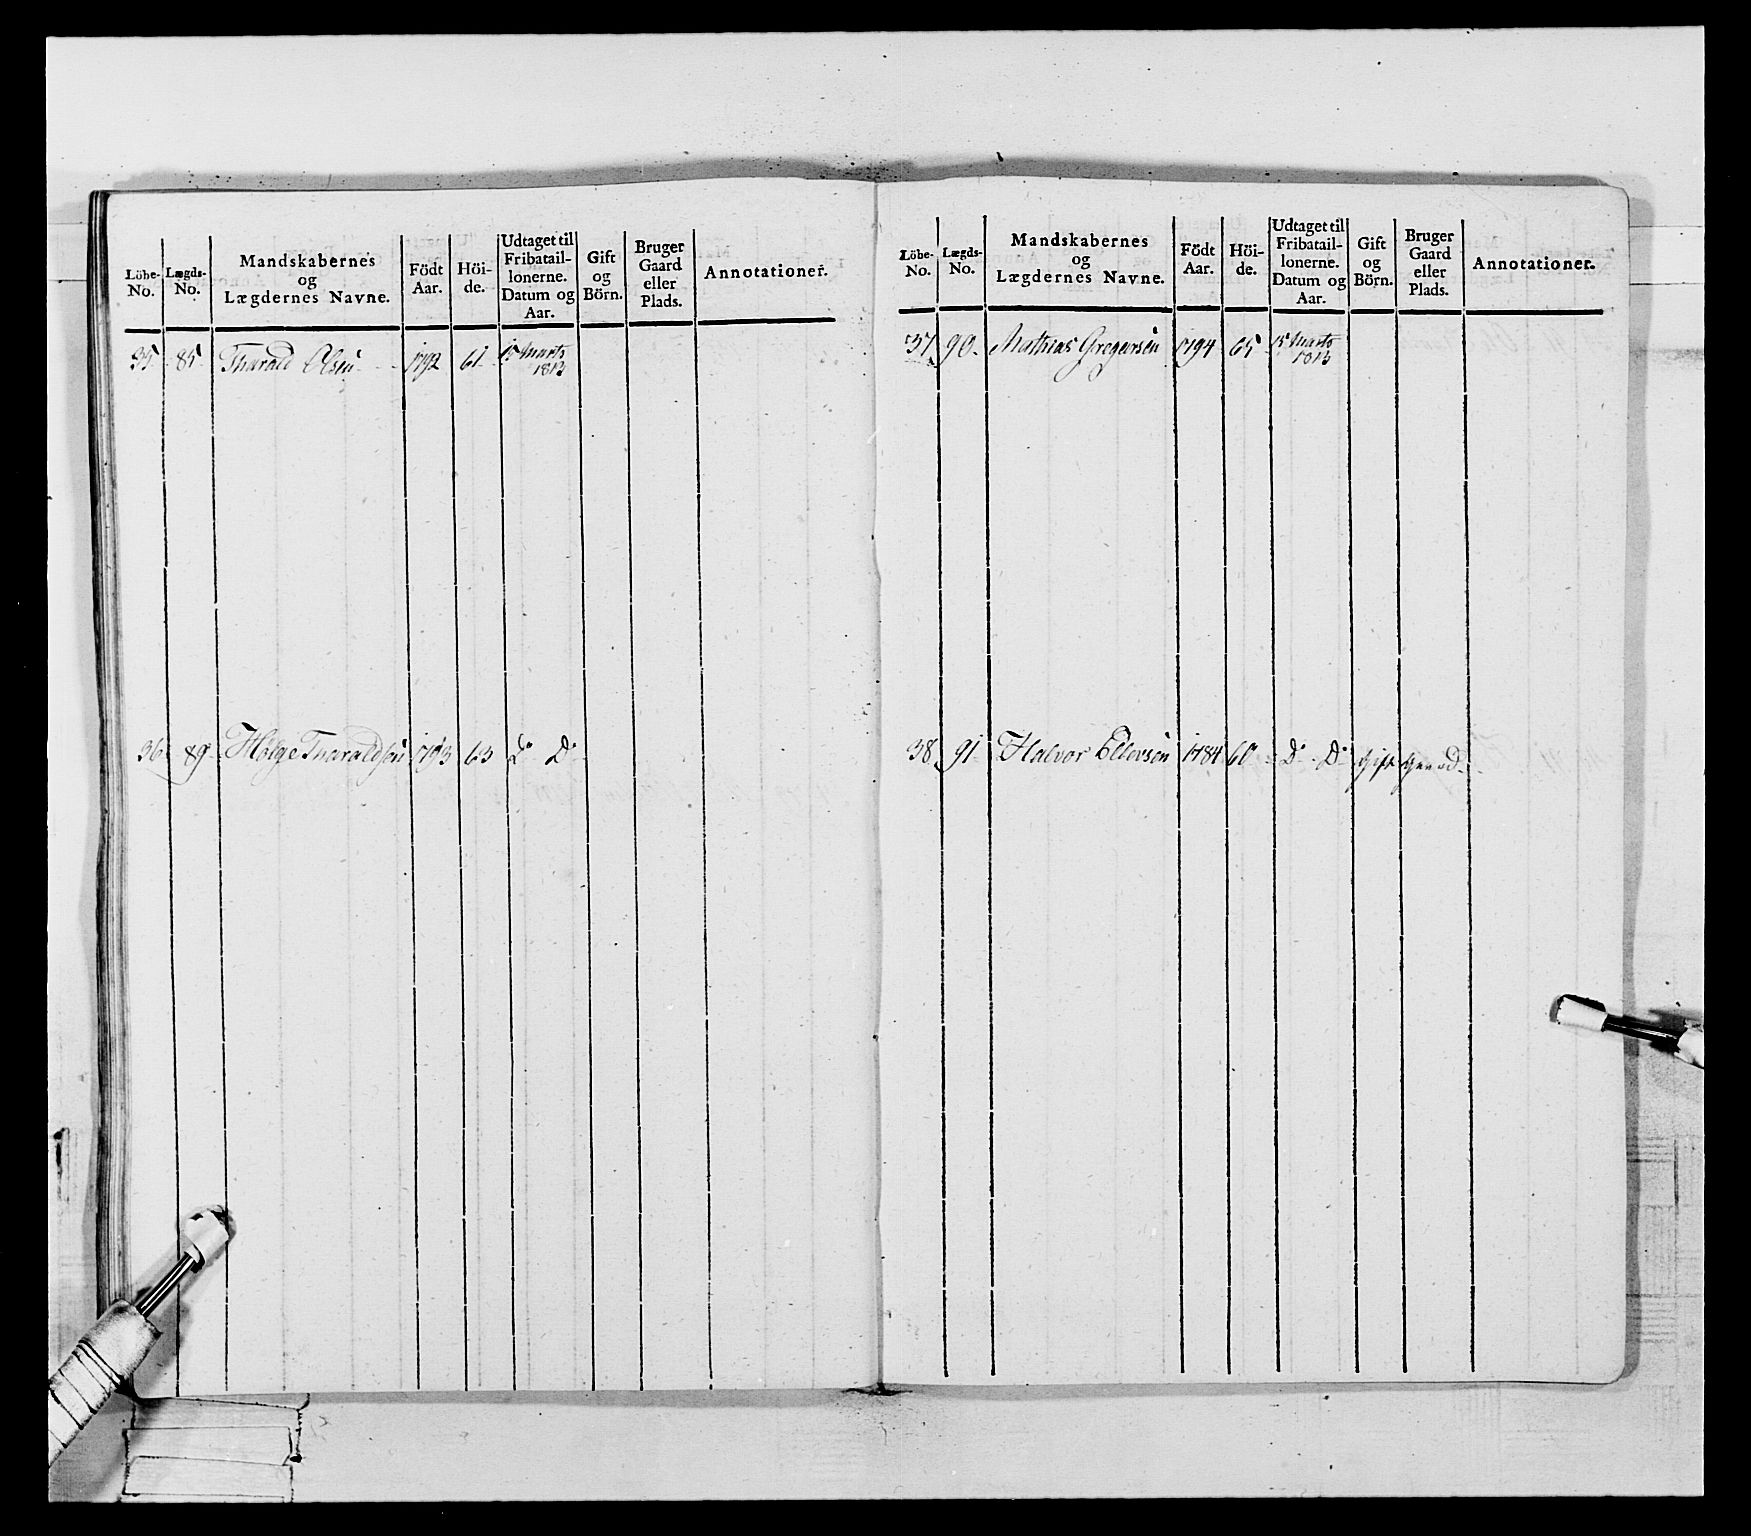 Löbe-No. Lægds-No. Mandskabernes og Lægdernes Navne. Födt Aar. Höi-de. Udtaget til Fribatail-lonerne. Datum og Aar. Gift og Börn. Bruger Gaard eller Plads. Annotationer.
35 85 Tharald Olsen 1792 61 15 Marts 1813
36 89 Helge Tharaldsøn 1793 63 Do Do
Löbe-No. Lægds-No. Mandskabernes og Lægdernes Navne. Födt Aar. Höi-de. Udtaget til Fribatail-lonerne. Datum og Aar. Gift og Börn. Bruger Gaard eller Plads. Annotationer.
37 90 Mathias Gregersen 1794 65 15 Marts 1813
38 91 Halvor Ellevsen 1784 60 Do Do Gift Gaard